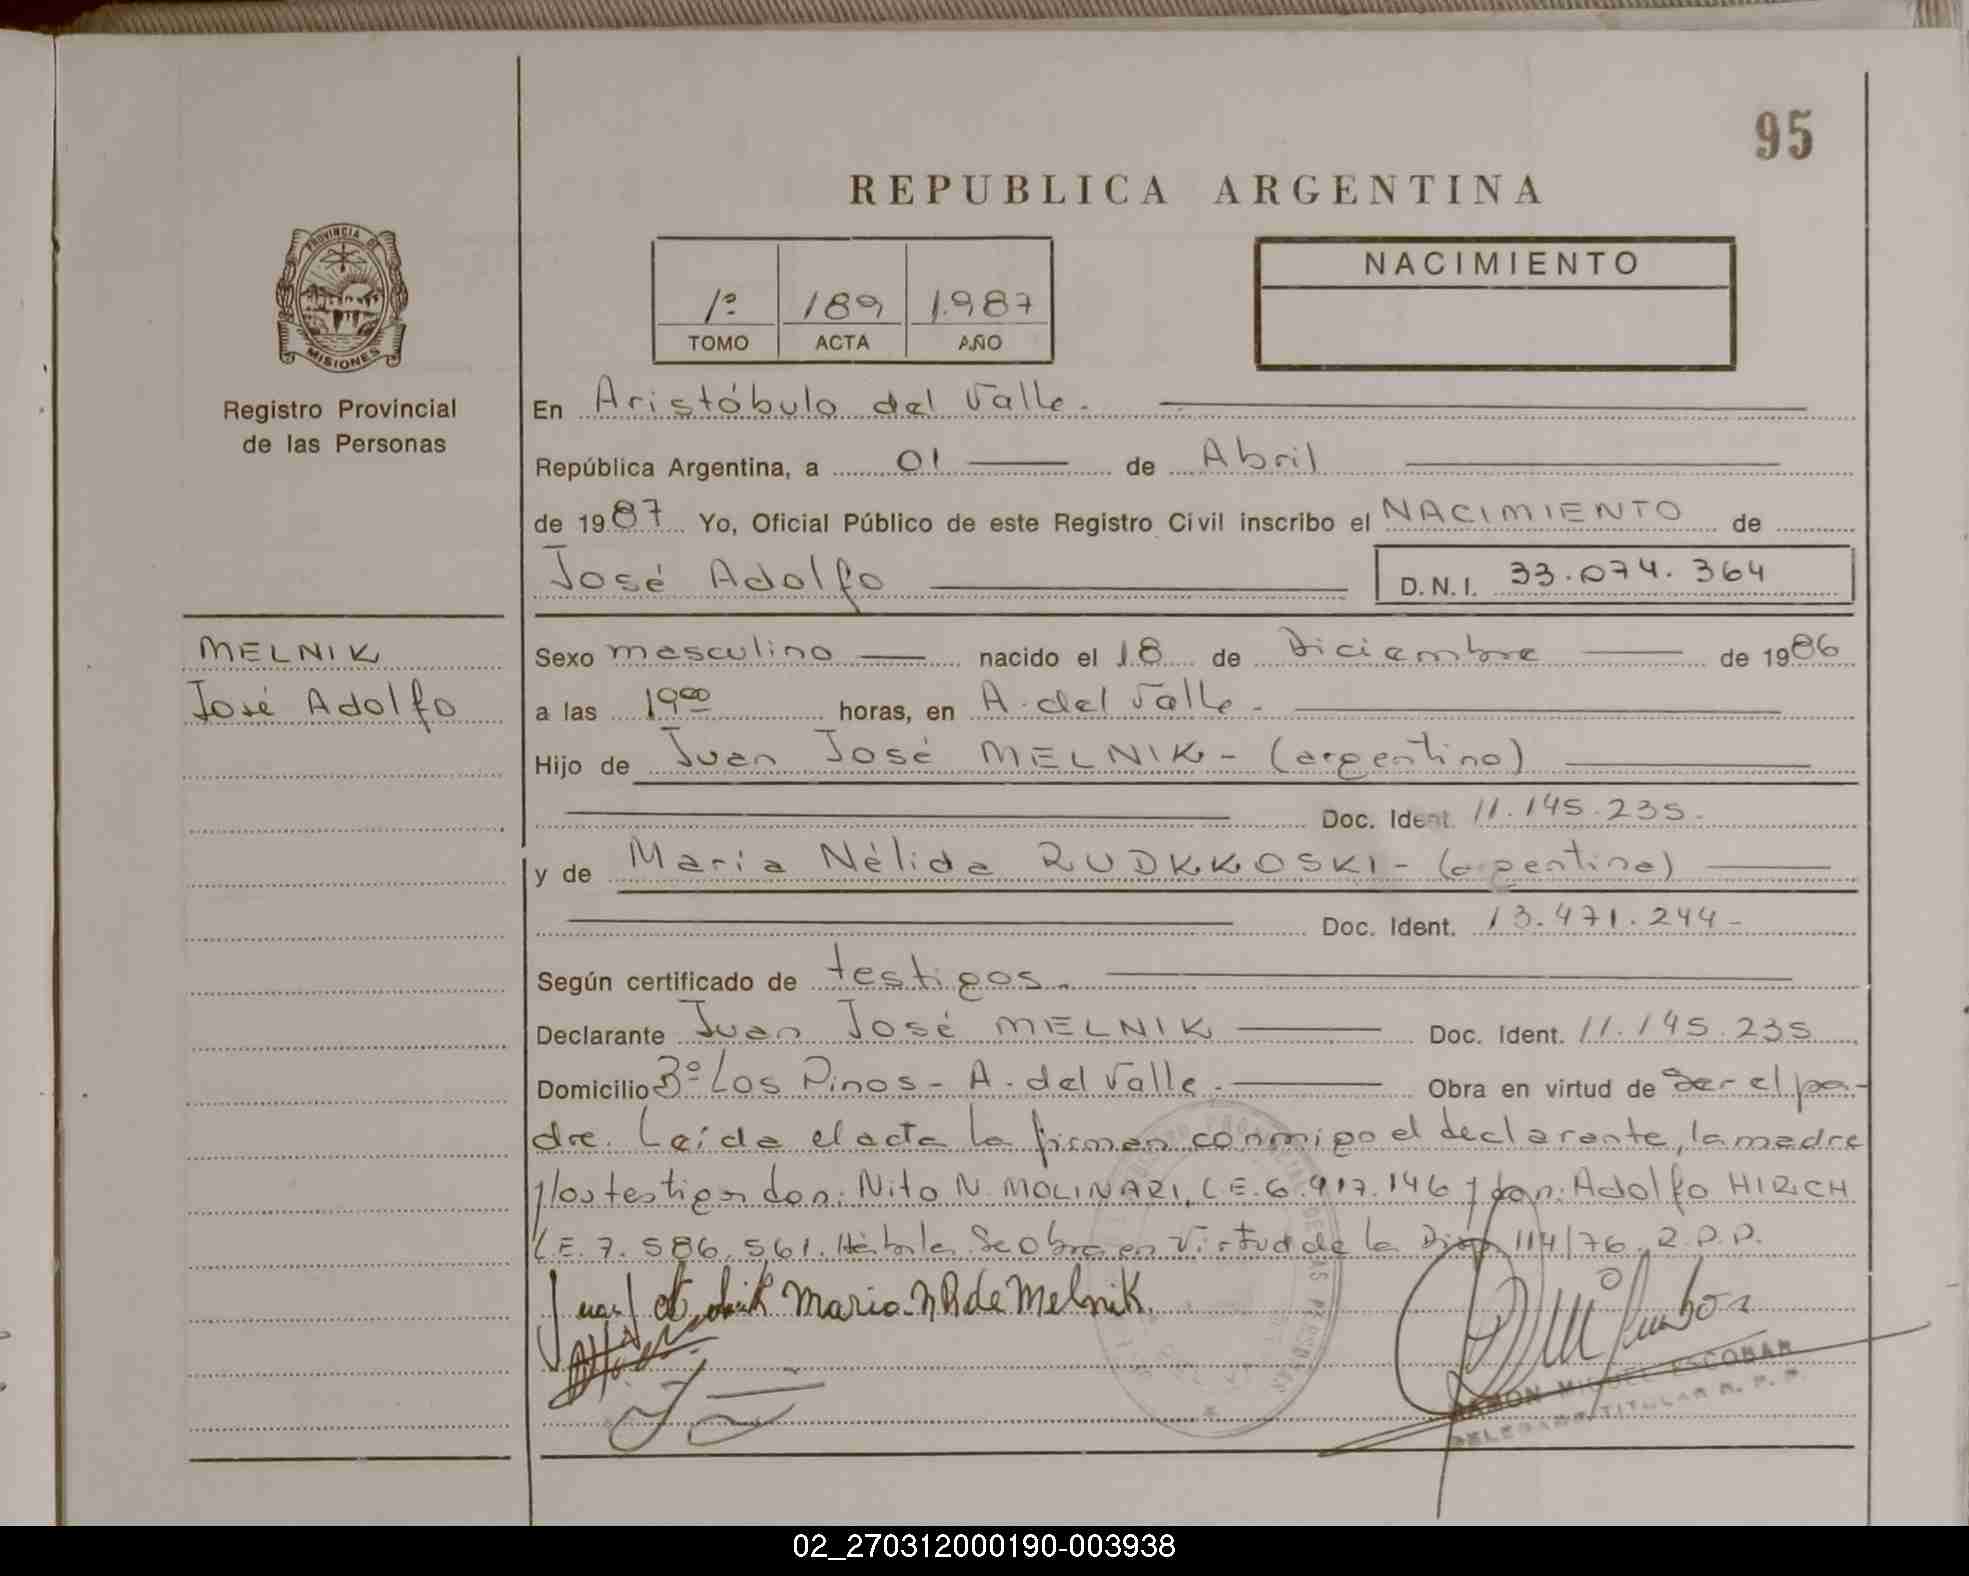 95
REPUBLICA ARGENTINA
PROVINCIA DE
MISIONES
Registro Provincial
de las Personas
1º 189 1.987
TOMO ACTA AÑO
NACIMIENTO
En Aristóbulo del Valle.
República Argentina, a 01 de Abril
de 1987 Yo, Oficial Público de este Registro Civil inscribo el NACIMIENTO de
José Adolfo D.N.I. 33.074.364
MELNIK
José Adolfo
Sexo masculino nacido el 18 de Diciembre de 1986
a las 19 00 horas, en A. del Valle.
Hijo de Juan José MELNIK - (argentino)
Doc. Ident. 11.145.235.
y de María Nélida RUDKKOSKI - (argentina)
Doc. Ident. 13.471.244-
Según certificado de testigos.
Declarante Juan José MELNIK Doc. Ident. 11.145.235
Domicilio Bº Los Pinos - A. del Valle. Obra en virtud de ser el pa-
dre. Leída el acta la firman conmigo el declarante, la madre
y los testigos don: Nito N. MOLINARI, L.E. 6.917.146 y don: Adolfo HIRCH
L.E. 7.586.561. Hábiles. Se obra en virtud de la Disp 114/76. R.P.P.
Juan J. Melnik Maria N R de Melnik
RAMON MIGUEL ESCOBAR
DELEGADO TITULAR R. P. P.
02_270312000190-003938